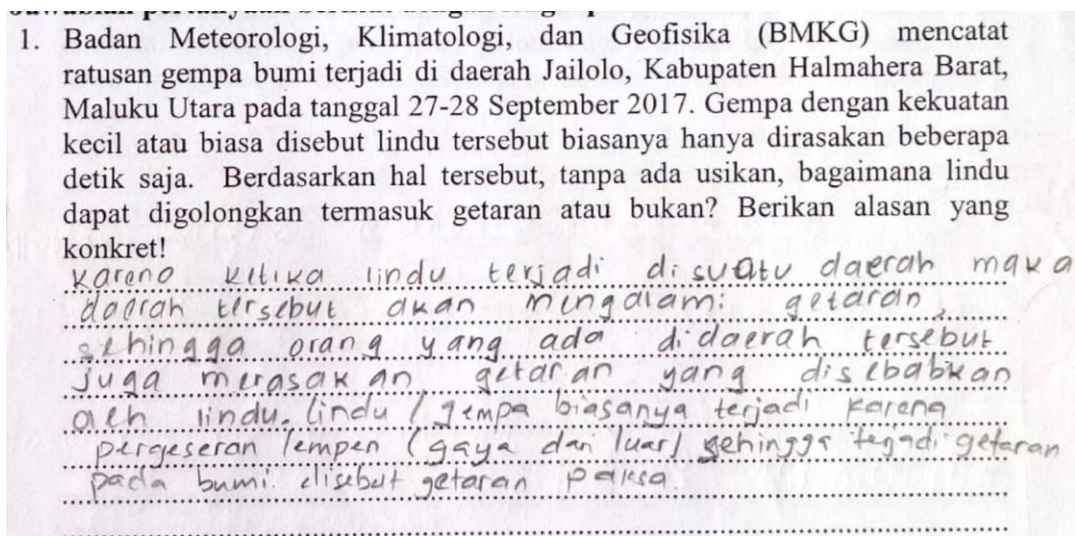 1. Badan Meteorologi, Klimatologi, dan Geofisika (BMKG) mencatat
ratusan gempa bumi terjadi di daerah Jailolo, Kabupaten Halmahera Barat,
Maluku Utara pada tanggal 27-28 September 2017. Gempa dengan kekuatan
kecil atau biasa disebut lindu tersebut biasanya hanya dirasakan beberapa
detik saja. Berdasarkan hal tersebut, tanpa ada usikan, bagaimana lindu
dapat digolongkan termasuk getaran atau bukan? Berikan alasan yang
konkret!
Karena ketika lindu terjadi disuatu daerah maka
daerah tersebut akan mengalami getaran,
sehingga orang yang ada didaerah tersebut
juga merasakan getaran yang disebabkan
oleh lindu. Lindu / gempa biasanya terjadi karena
pergeseran lempen (gaya dari luar) sehingga tejadi getaran
pada bumi disebut getaran paksa.